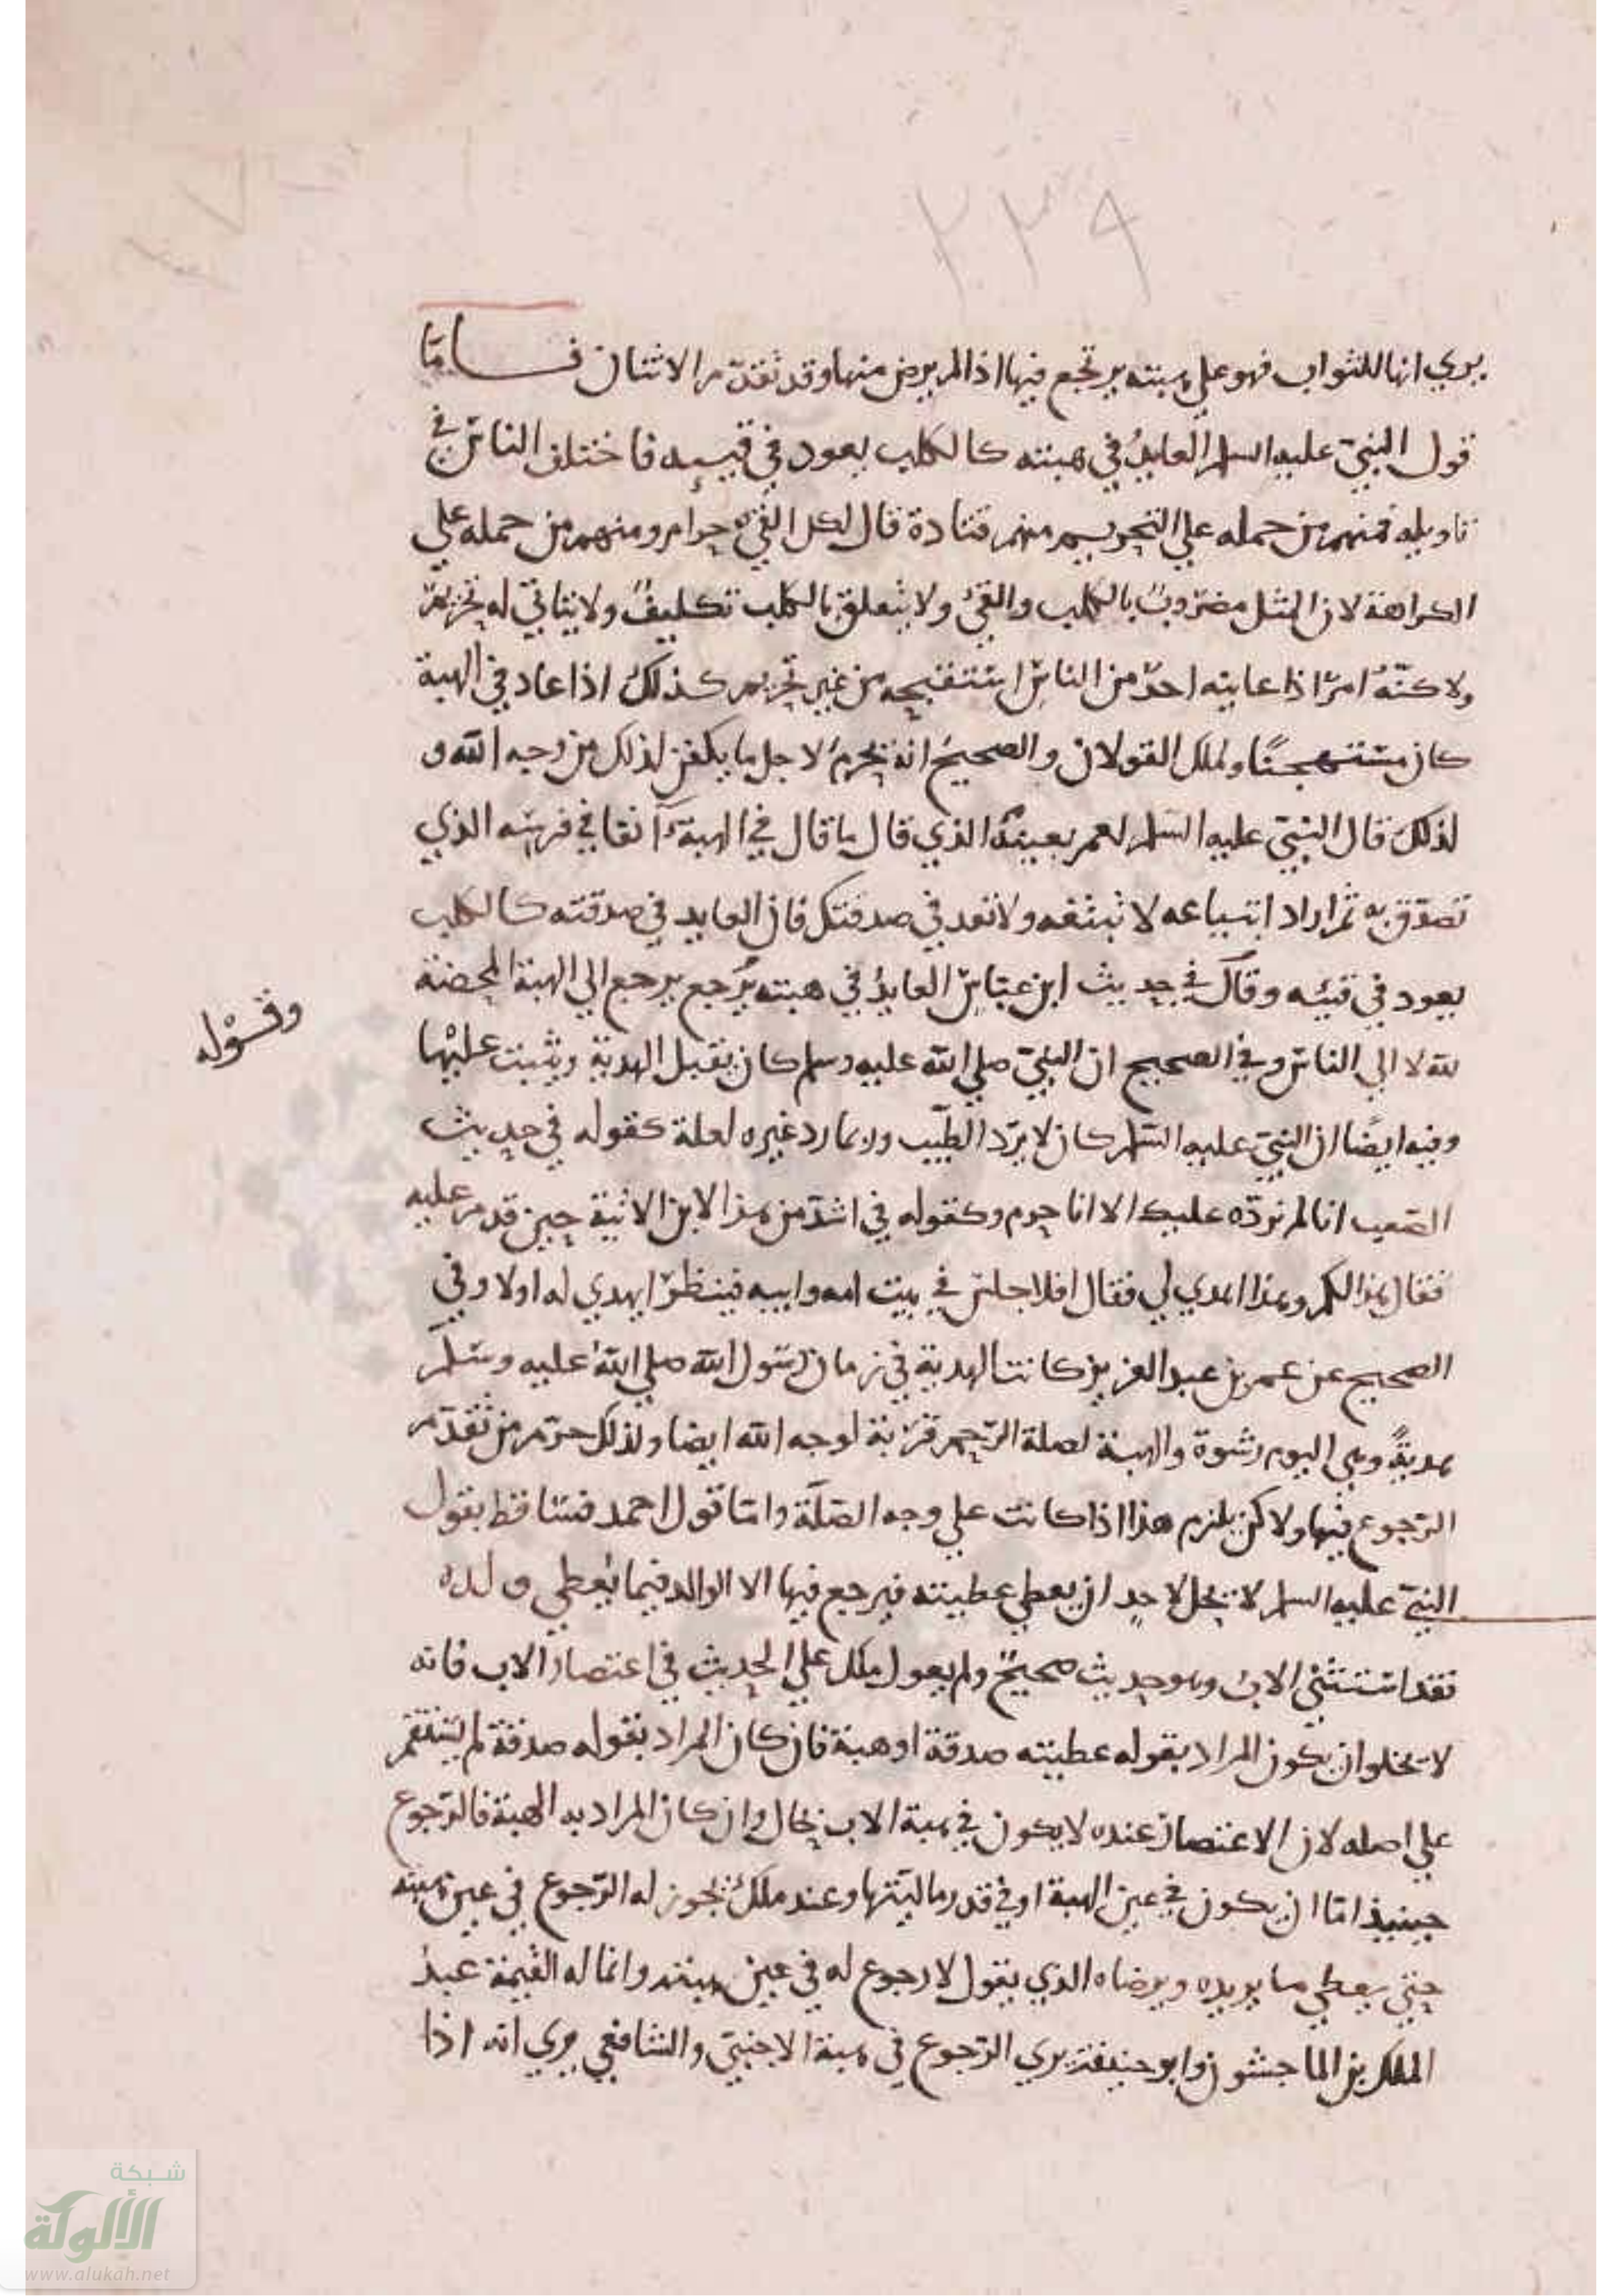 ٢٣٩
يري انها للثواب فهو علي هبته يرتجع فيها اذا لم يرض منها وقد تقدم الاثنان فاما
قول النبي عليه السلم العايد في هبته كالكلب يعود في قييه فاختلف الناس في
تاويله فمنهم من حمله علي التحريم منهم قتادة قال اكل القيء حرام ومنهم من حمله علي
الكراهة لان المثل مضروب بالكلب والقيء ولا يتعلق بالكلب تكليف ولا يتاتي له تحريم
ولاكنه امر اذا عاينه احد من الناس استقبحه من غير تحريم كذلك اذا عاد في الهبة
كان مستهجنا ولملك القولان والصحيح انه يحرم لاجل ما يكون لذلك من وجه الله و
لذلك قال النبي عليه السلم لعمر بعينه الذي قال ما قال في الهبة آنفا في فرسه الذي
تصدق به ثم اراد ابتياعه لا تبتعه ولا تعد في صدقتك فان العايد في صدقته كالكلب
يعود في قيئه وقال في حديث ابن عباس العايد في هبته يرجع يرجع الي الهبة المحضة
وقوله
لله لا الي الناس وفي الصحيح ان النبي صلي الله عليه وسلم كان يقبل الهدية ويثيب عليها
وفيه ايضا ان النبي عليه السلم كان لا يرد الطيب وربما رد غيره لعلة كقوله في حديث
الصعب انا لم نرده عليك الا انا حرم وكقوله في اشد من هذا لابن الاتبية حين قدم عليه
فقال هذا لكم وهذا اهدي لي فقال افلا جلس في بيت امه وابيه فينظر ايهدي له اولا وفي
الصحيح عن عمر بن عبد العزيز كانت الهدية في زمان رسول الله صلي الله عليه وسلم
هدية وهي اليوم رشوة والهبة لصلة الرحم قربة لوجه الله ايضا ولذلك حرم من تقدم
الرجوع فيها ولاكن يلزم هذا اذا كانت علي وجه الصلة واما قول احمد فساقط بقول
النبي عليه السلم لا يحل لاحد ان يعطي عطيته فيرجع فيها الا الوالد فيما يعطي ولده
فقد استثني الاب وهو حديث صحيح ولم يعول ملك علي الحديث في اعتصار الاب فانه
لا يخلو ان يكون المراد بقوله عطيته صدقة او هبة فان كان المراد بقوله صدقة لم يستقم
علي اصله لان الاعتصار عنده لا يكون في هبة الاب بحال وان كان المراد به الهبة فالرجوع
حينيذ اما ان يكون في عين الهبة او في قدر ماليتها وعند ملك يجوز له الرجوع في عين هبته
حتي يعطي ما يريده ويرضاه الذي يقول لا رجوع له في عين هبته وانما له القيمة عبد
الملك بن الماجشون وابو حنيفة يري الرجوع في هبة الاجنبي والشافعي يري انه اذا
شبكة
الألوكة
www.alukah.net